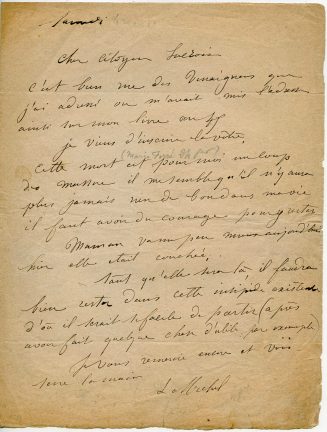 Samedi
Cher Citoyen Lacroix
c'est bien rue des Vinaigriers que
j'ai adressé on m'avait mis l'adresse
aussi sur mon livre au
je viens d'inscrire la vôtre
Cette mort (Marie Ferré) est pour moi un coup
de massue il me semble qu'il n'y aura
plus jamais rien de bon dans ma vie
il faut avoir du courage pour y rester
Maman va un peu mieux aujourd'hui
hier elle était couchée.
tant qu'elle sera là, il faudra
bien rester dans cette insipide existence
d'où il serait si facile de partir (après
avoir fait quelque chose d'utile par exemple)
je vous remercie encore et vous
serre la main
L Michel